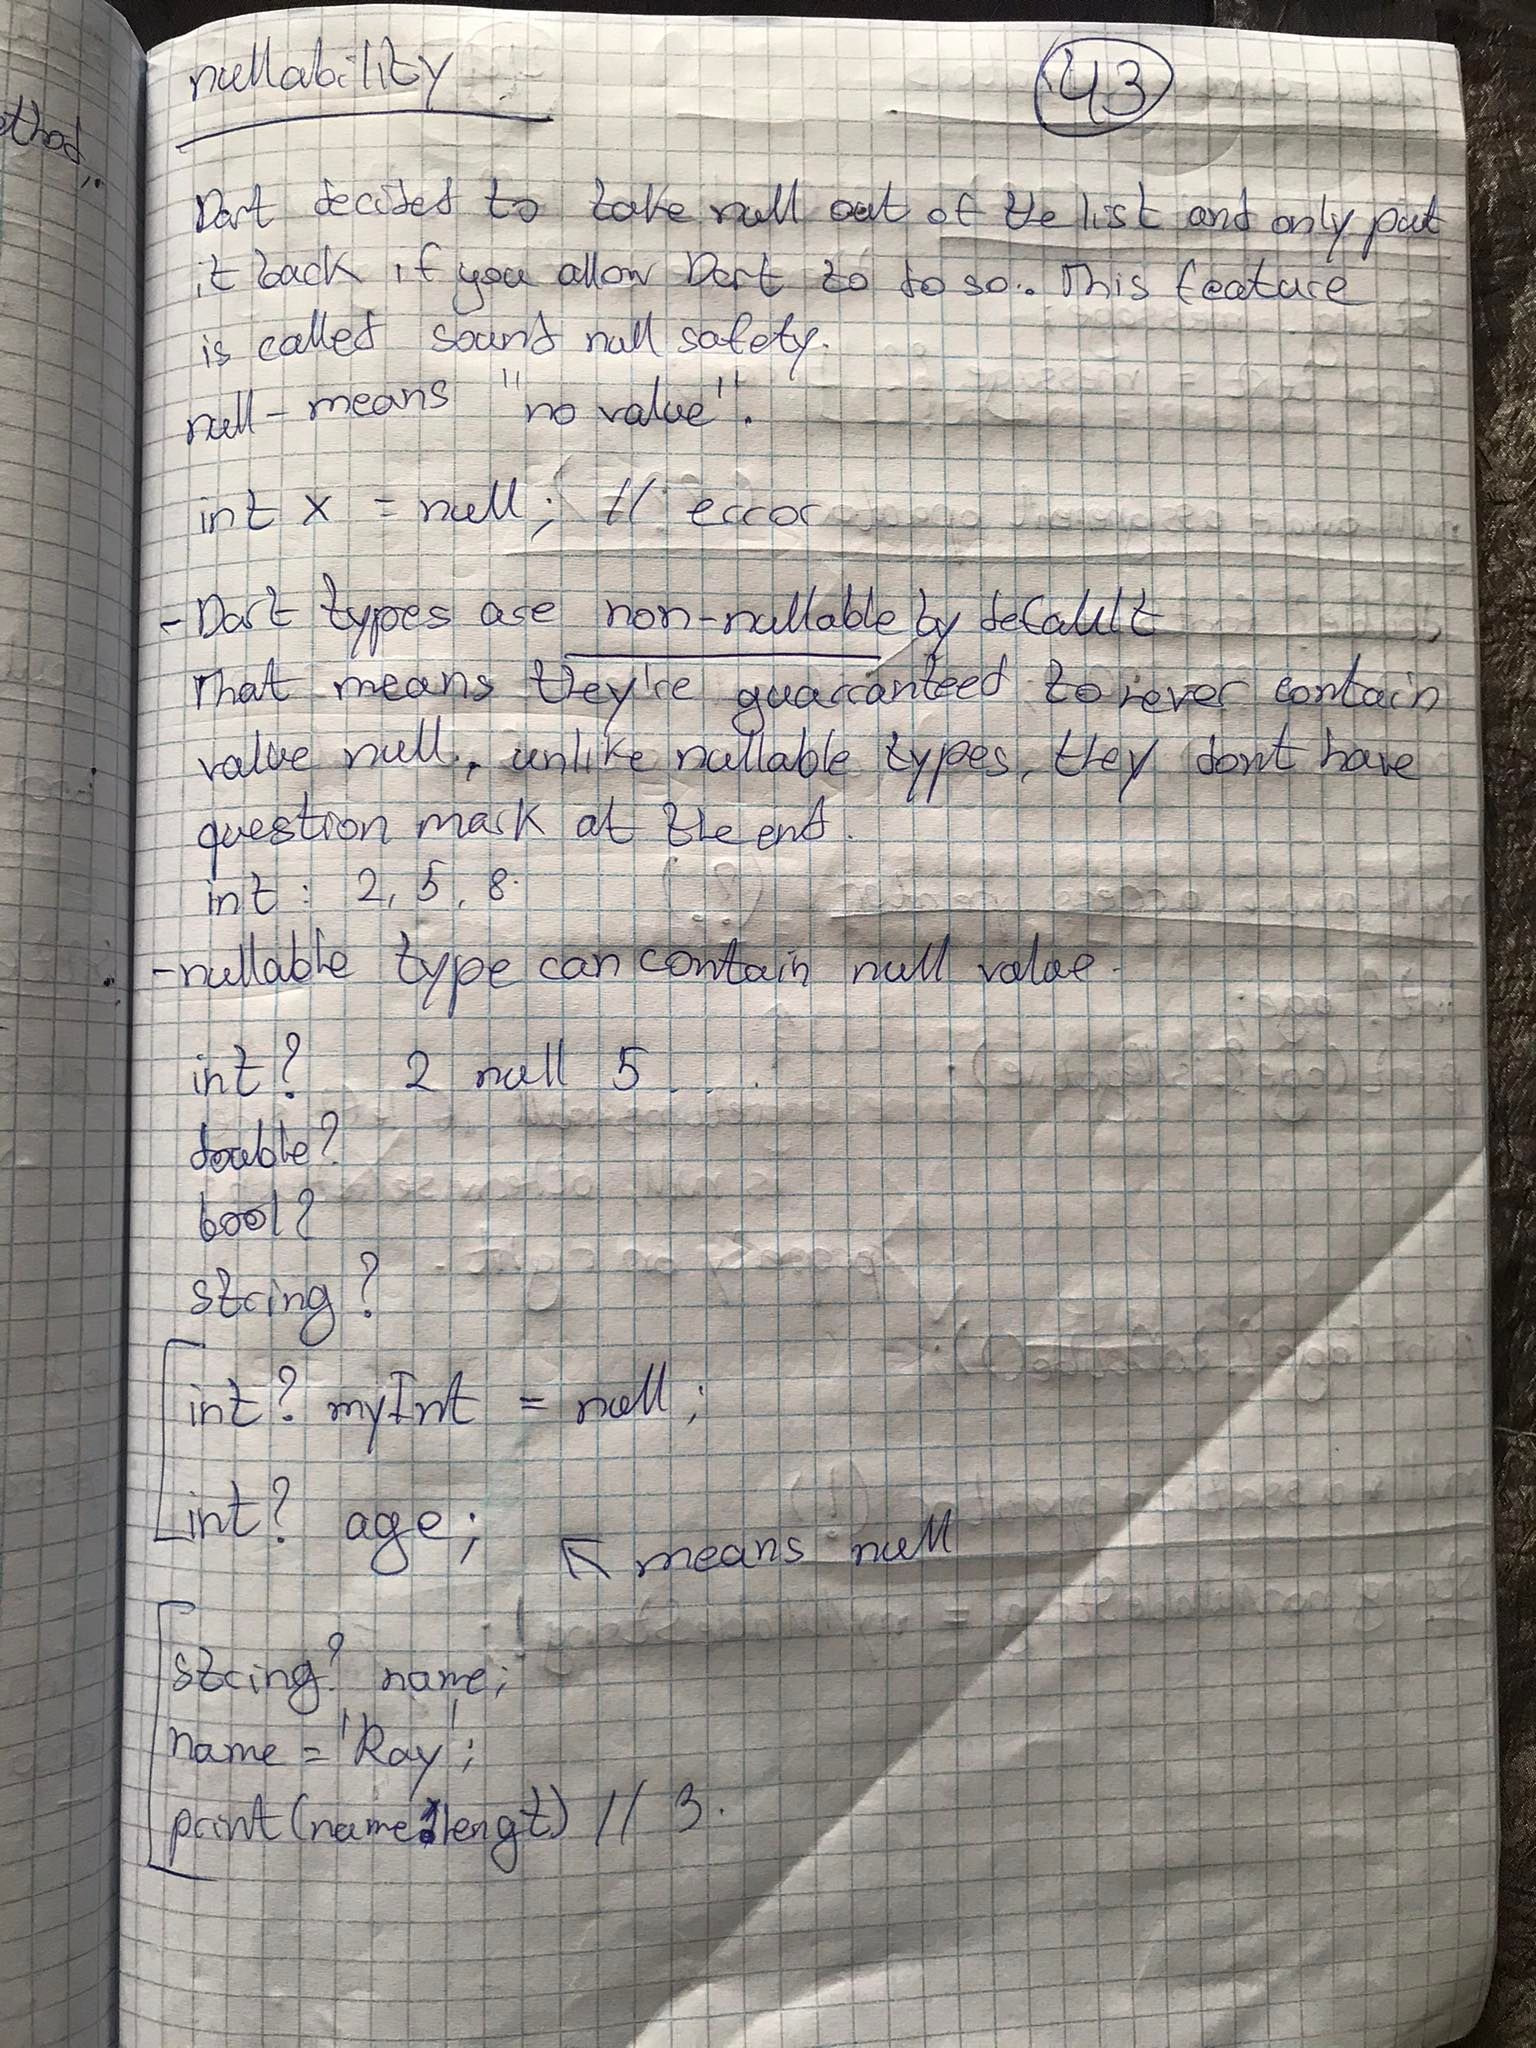 nullability
43
ethod,.
Dart decided to take null out of the list and only put
it back if you allow Dart to do so.. This feature
is called sound null safety.
null - means "no value".
int x = null; // error
- Dart types are non-nullable by default
That means they're guarranteed to never contain
value null., unlike nullable types, they don't have
question mark at the end.
int : 2, 5, 8.
- nullable type can contain null value.
int? 2 null 5 . . .
double?
bool?
string?
int? myInt = null;
int? age;
↖ means null
string? name;
name = 'Ray';
print(name.lengt) // 3.